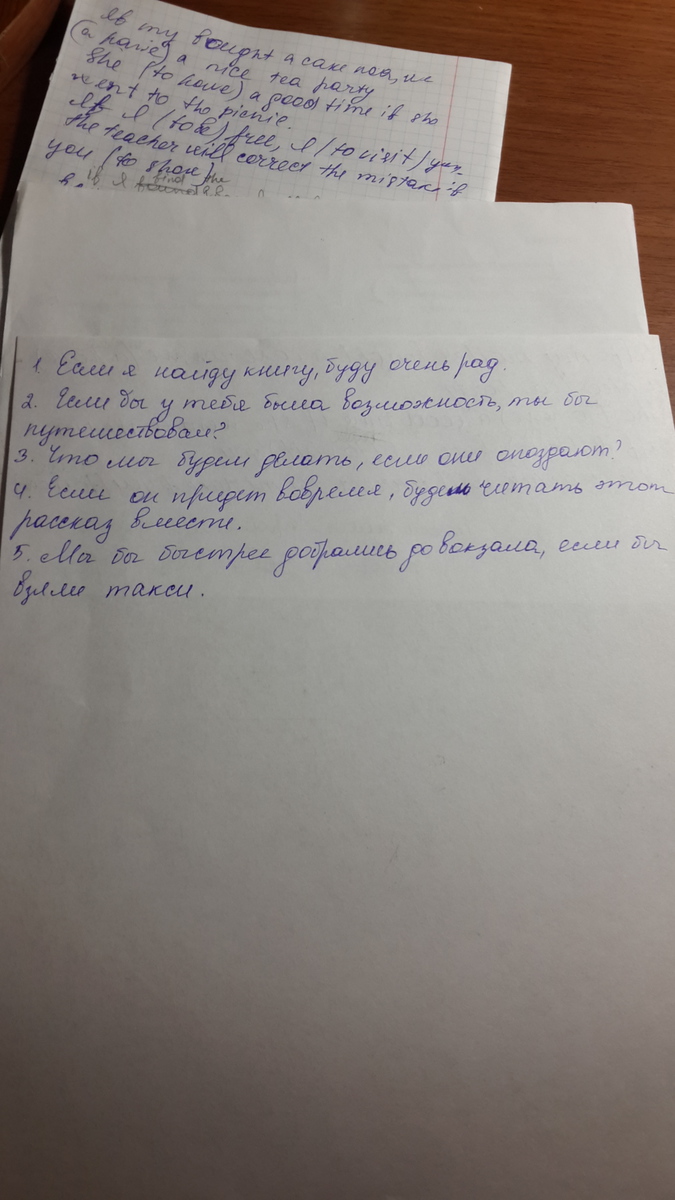 If my bought a cake now, we
(to have) a nice tea party
She (to have) a good time if she
went to the picnic.
If I (to be) free, I (to visit) you.
The teacher will correct the mistake if
you (to show)
If I find the
1. Если я найду книгу, буду очень рад.
2. Если бы у тебя была возможность, ты бы
путешествовал?
3. Что мы будем делать, если они опоздают?
4. Если он придет вовремя, будем читать этот
рассказ вместе.
5. Мы бы быстрее добрались до вокзала, если бы
взяли такси.